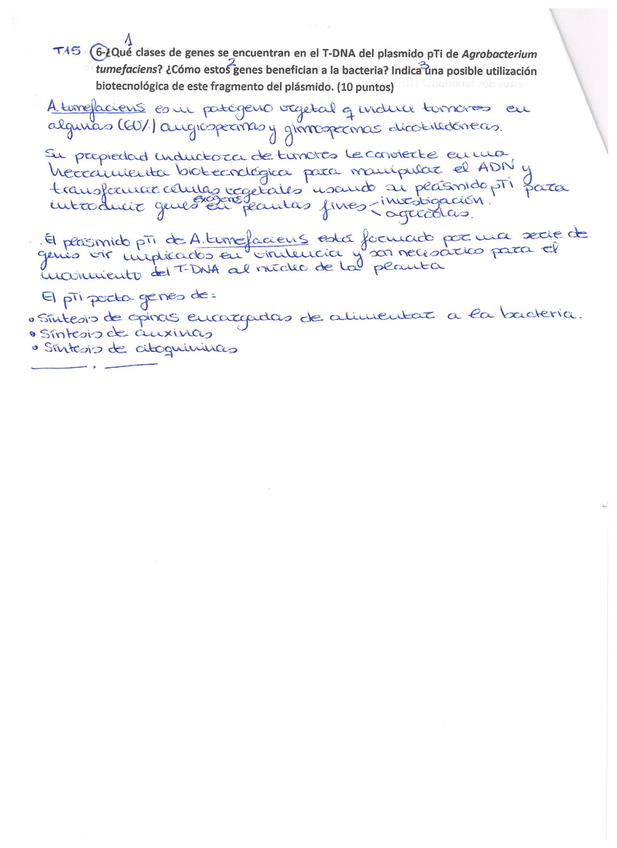 1
T15 6-¿Qué clases de genes se encuentran en el T-DNA del plasmido pTi de Agrobacterium
2 3
tumefaciens? ¿Cómo estos genes benefician a la bacteria? Indica una posible utilización
biotecnológica de este fragmento del plásmido. (10 puntos)
A. tumefaciens es un patógeno vegetal q induce tumores en
algunas (60%) angiospermas y gimnospermas dicotiledóneas.
Su propiedad inductora de tumores le convierte en una
herramienta biotecnológica para manipular el ADN y
transformar células vegetales usando su plásmido pTi para
exógenos
introducir genes en plantas fines - investigación.
agrícolas.
. El plásmido pTi de A. tumefaciens está formado por una serie de
genes vir implicados en virulencia y son necesarios para el
movimiento del T-DNA al núcleo de la planta
El pTi porta genes de:
• Síntesis de opinas encargadas de alimentar a la bacteria.
• Síntesis de auxinas
• Síntesis de citoquininas